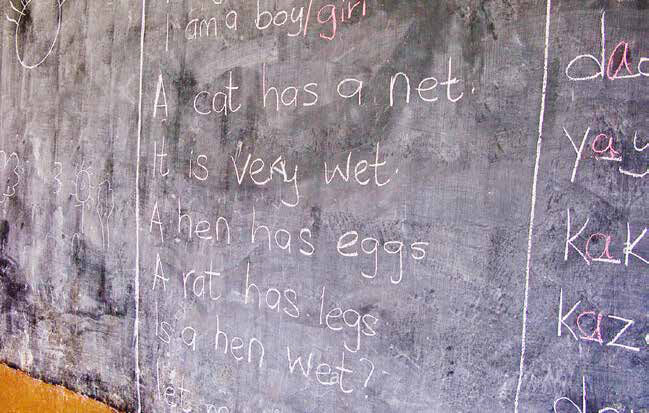 I am a boy/girl
A cat has a net.
It is Very wet.
A hen has eggs
A rat has legs
Is a hen wet?
let
da
yay
Kak
Kaz